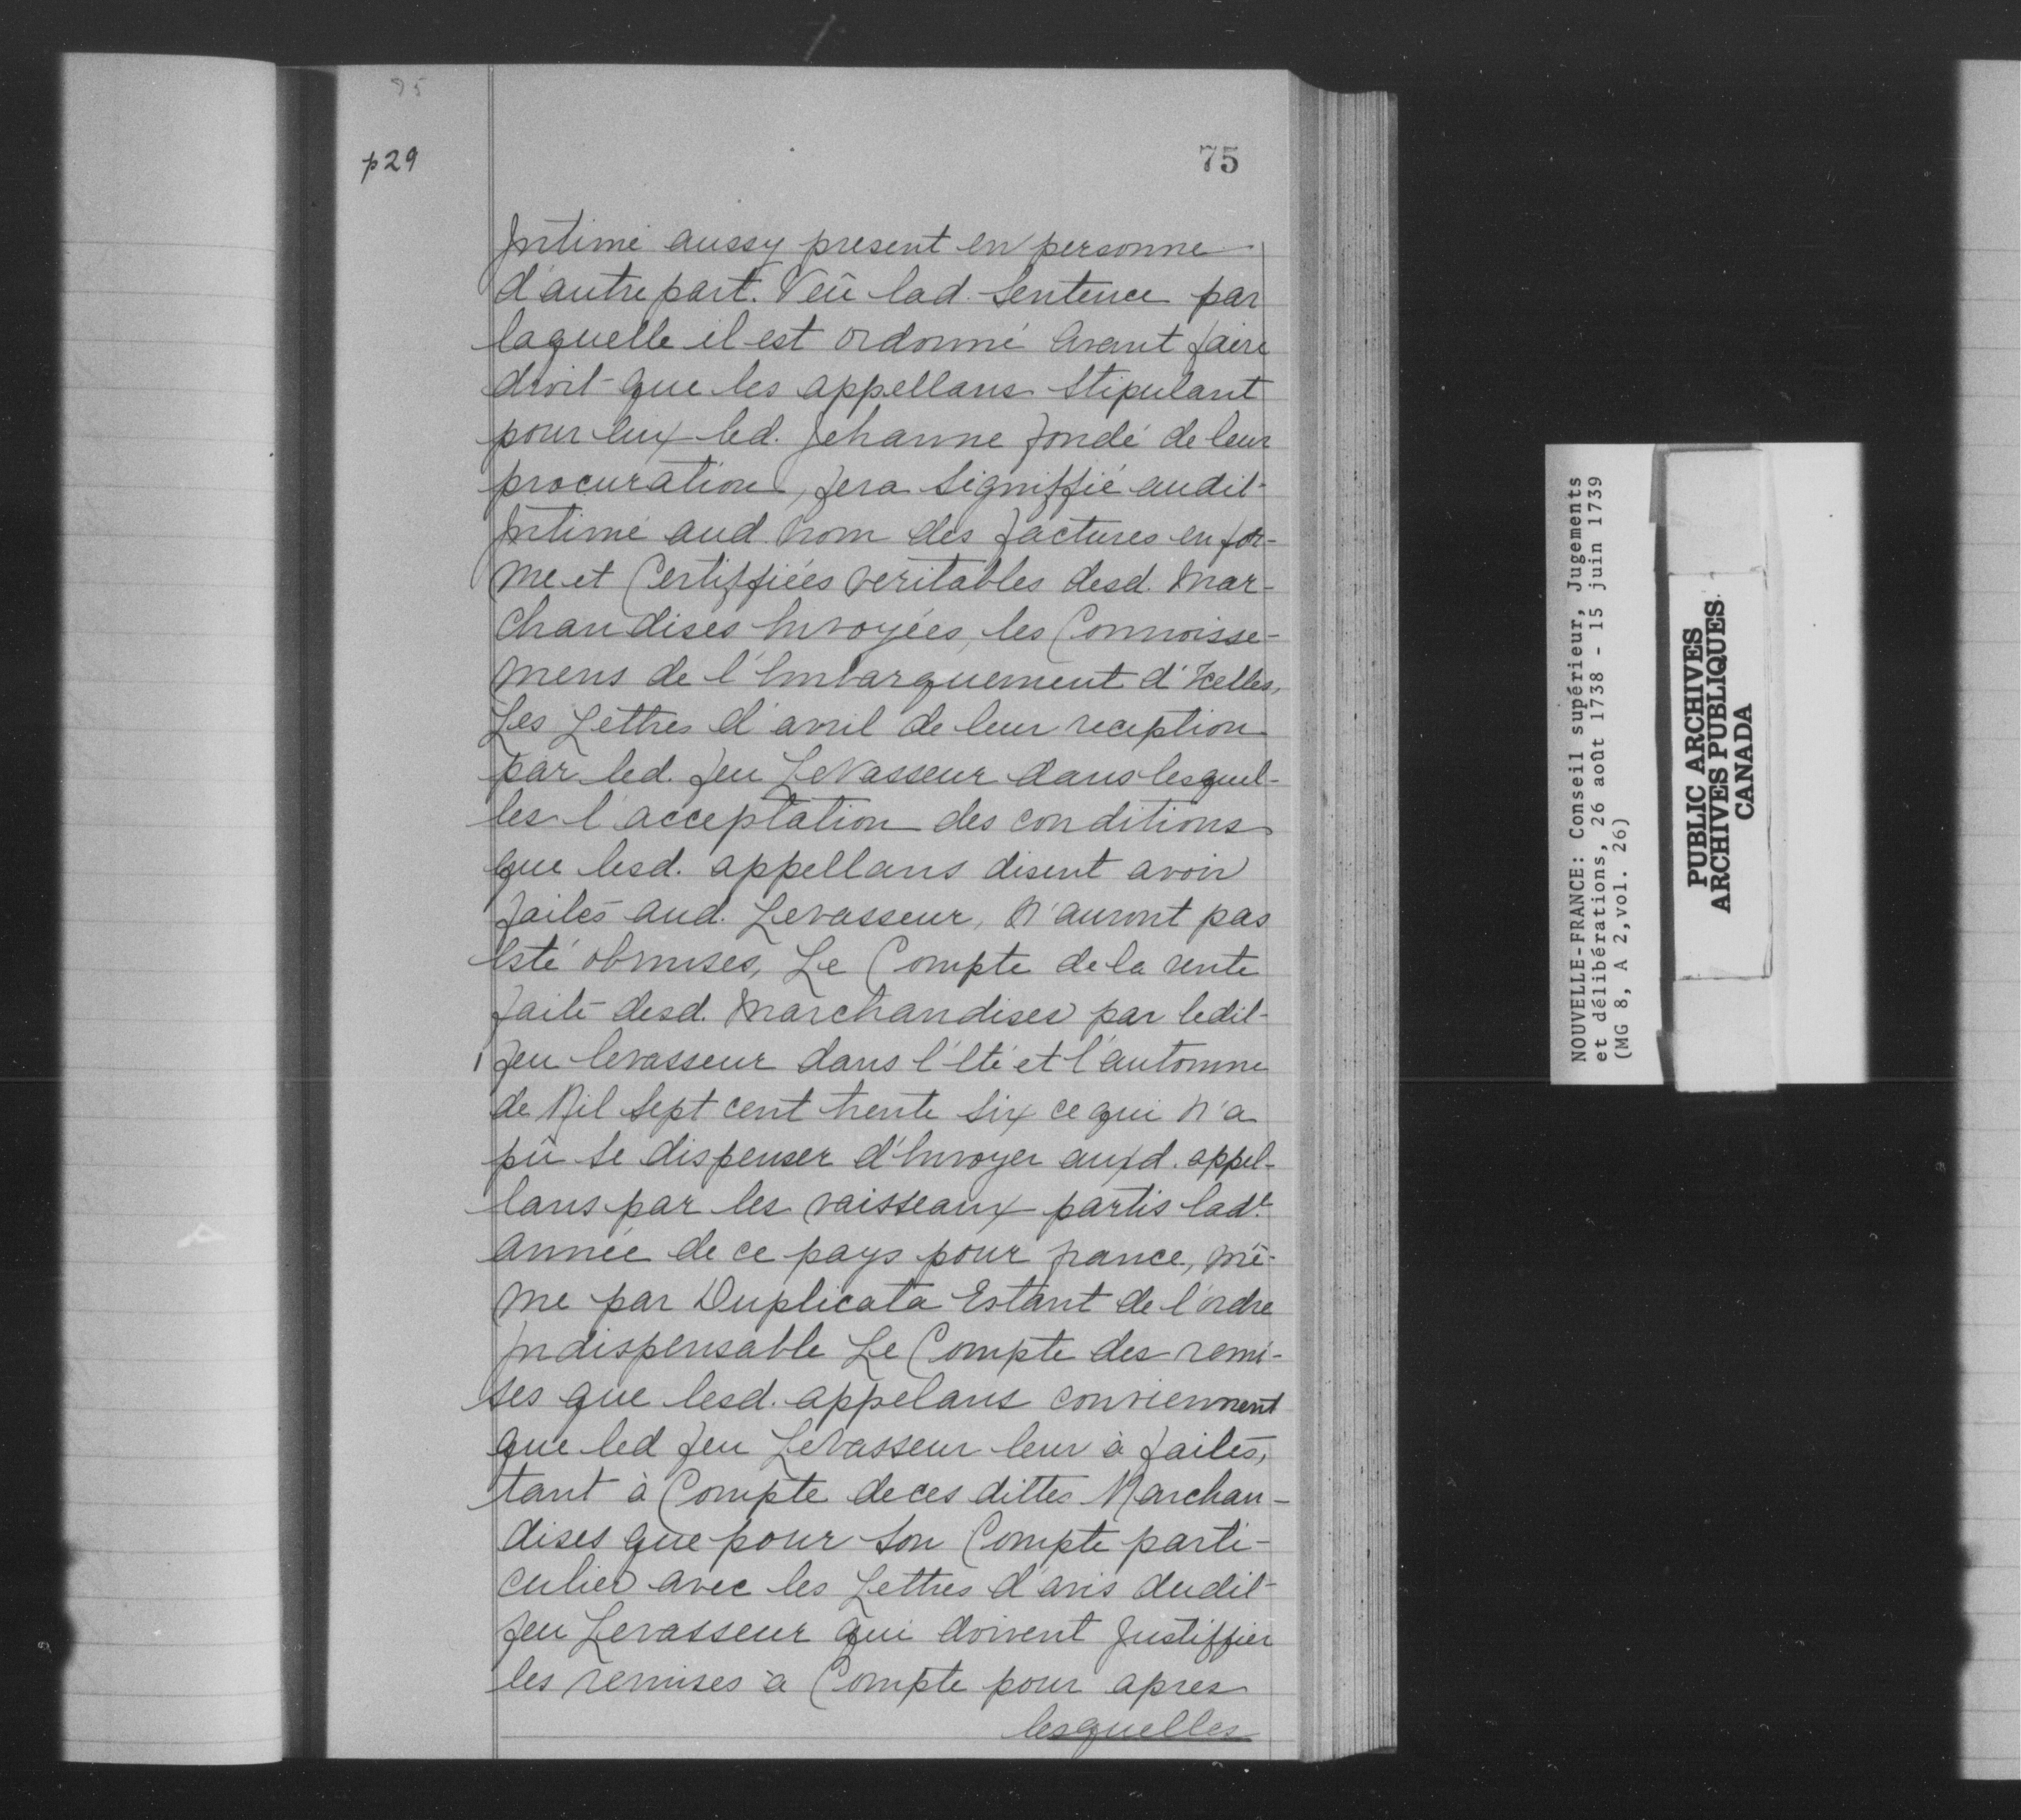 95
p29
75
Intimé aussy present en personne
d'autre part. Veû lad. Sentence par
laquelle il est ordonné avant faire
droit que les appellans Stipulant
pour eux led. Jehanne fondé de leur
procuration, fera Signiffié audit
Intimé aud. nom des factures en for-
me et Certiffiées veritables desd. Mar-
chandises Envoyées, les Connoisse-
mens de l'Embarquement d'Icelles,
Les Lettres d'avril de leur reception
par led. feu LeVasseur dans lesquel-
les l'acceptation des conditions
que lesd. appellans disent avoir
faites aud. Levasseur, n'auront pas
Esté obmises, Le Compte de la vente
faite desd. Marchandises par ledit
feu levasseur dans l'Eté et l'automne
de Mil Sept cent trente Six ce qui n'a
pû Se dispenser d'Envoyer auxd. appel-
lans par les vaisseaux partis ladte
année de ce pays pour france, mê-
me par Duplicata Estant de l'ordre
Indispensable Le Compte des remi-
ses que lesd. appelans conviennent
que led feu Levasseur leur à faites,
tant à Compte de ces dittes Marchan-
dises que pour Son Compte parti-
culier avec les Lettres d'avis dudit
feu Levasseur qui doivent Justiffier
les remises à Compte pour apres
lesquelles
NOUVELLE-FRANCE: Conseil supérieur, Jugements
et délibérations, 26 août 1738 - 15 juin 1739
(MG 8, A 2,vol. 26)
PUBLIC ARCHIVES
ARCHIVES PUBLIQUES
CANADA